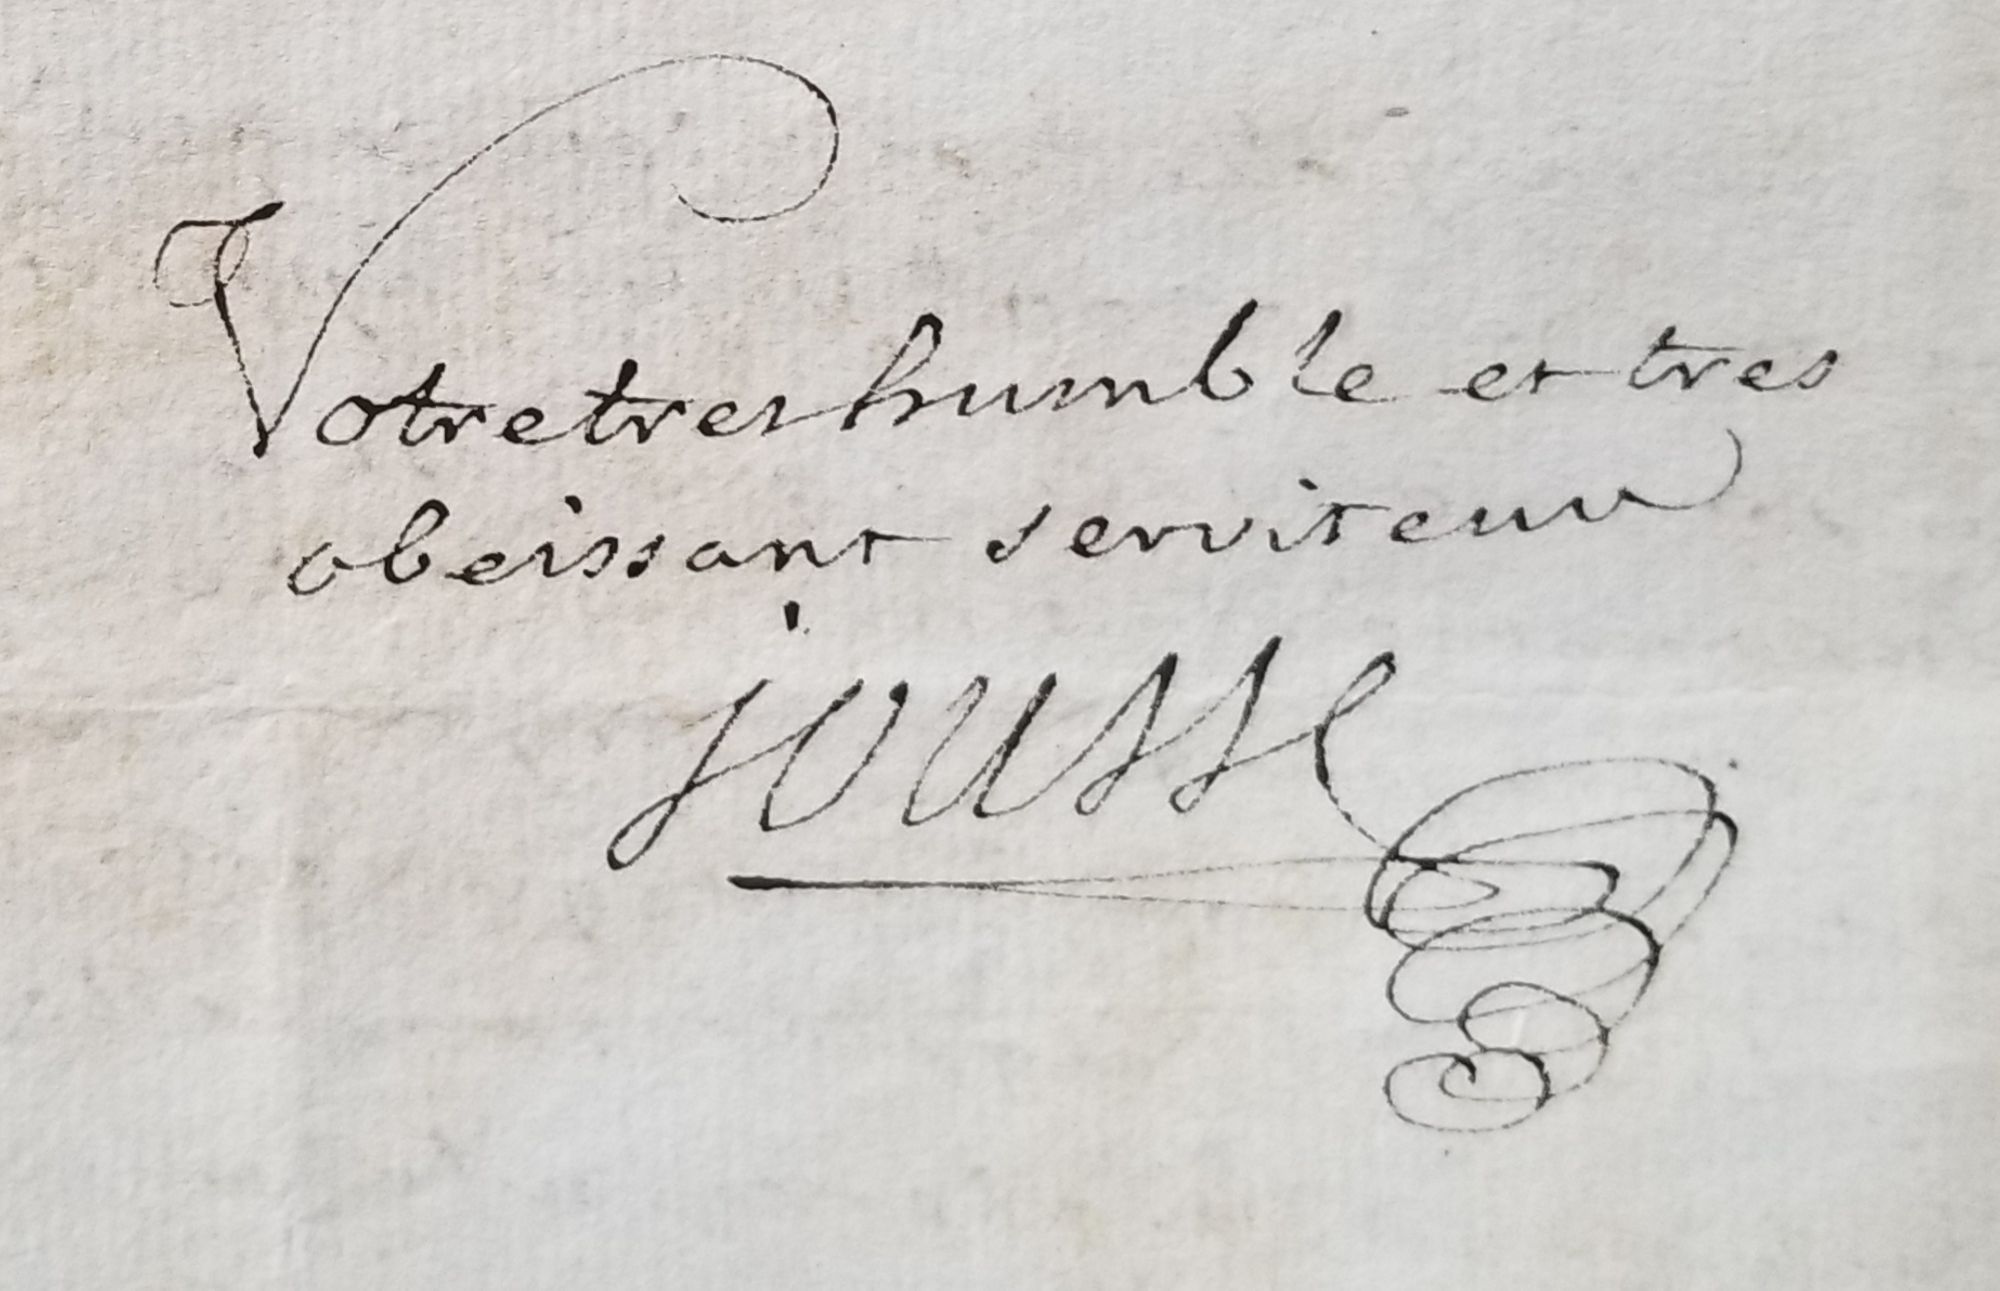 Votre tres humble et tres
obeissant serviteur
jousse